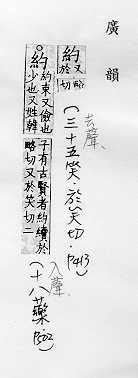 廣韻
去聲
約又於略切
(三十五笑·於笑切·P413)
入聲
約約束又儉也少也又姓韓
子有古賢者約續於略切又於笑切二
(十八藥·P502)